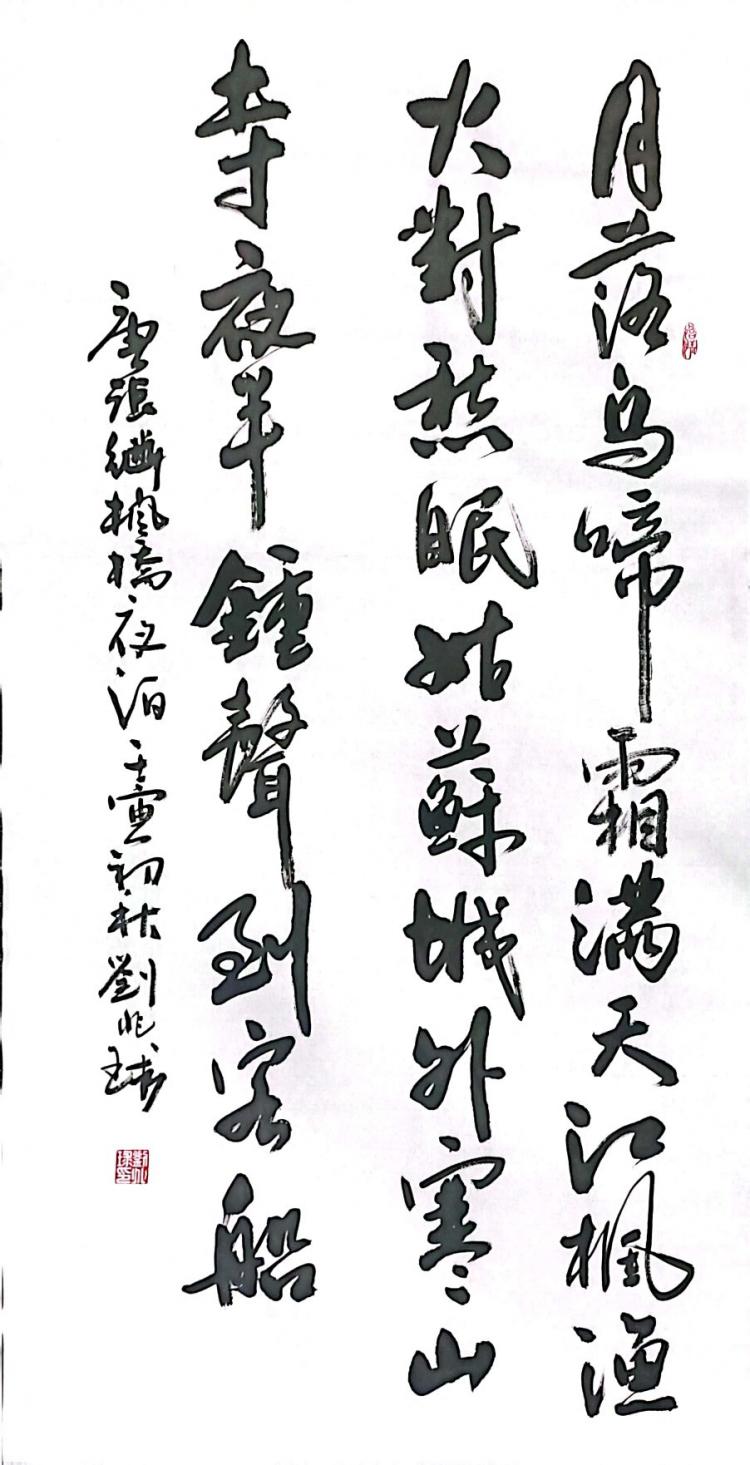 月落烏啼霜滿天江楓漁
火對愁眠姑蘇城外寒山
寺夜半鍾聲到客船
唐張繼楓橋夜泊壬寅初秋劉兆球